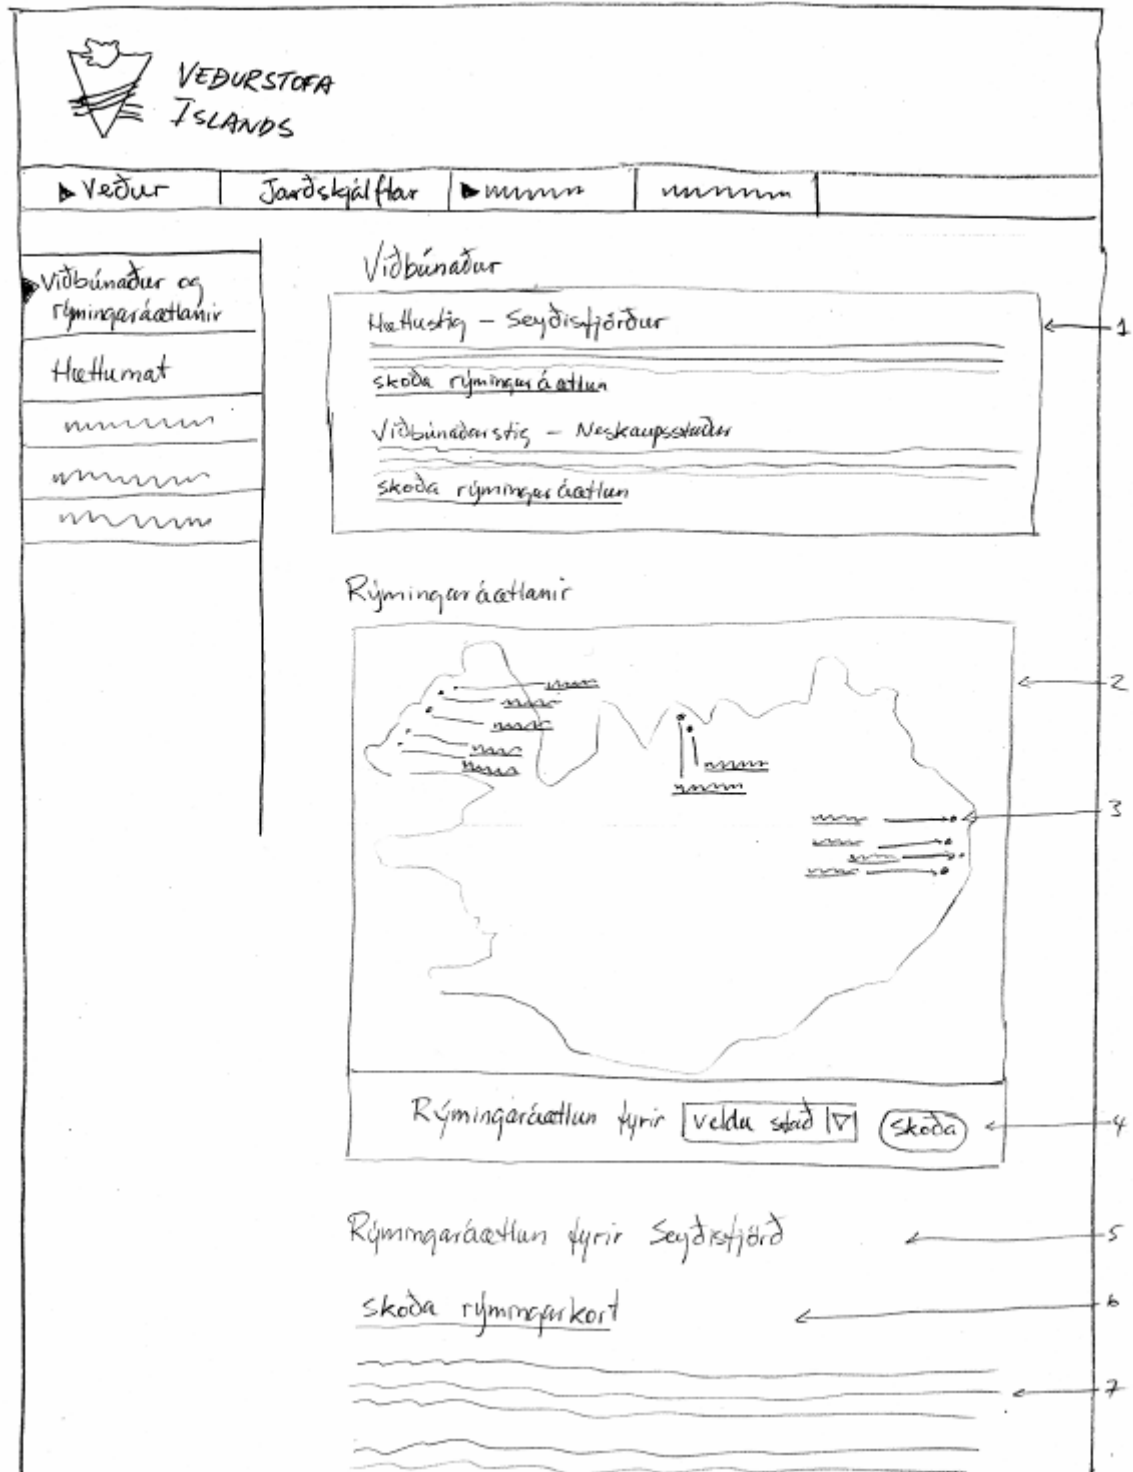 VEÐURSTOFA
ÍSLANDS
Veður
Jarðskjálftar
Viðbúnaður og
rýmingaráætlanir
Hættumat
Viðbúnaður
Hættustig – Seyðisfjörður
skoða rýmingaráætlun
Viðbúnaðarstig – Neskaupsstaður
skoða rýmingaráætlun
1
Rýmingaráætlanir
2
3
Rýmingaráætlun fyrir veldu stað skoða
4
Rýmingaráætlun fyrir Seyðisfjörð
5
skoða rýmingarkort
6
7